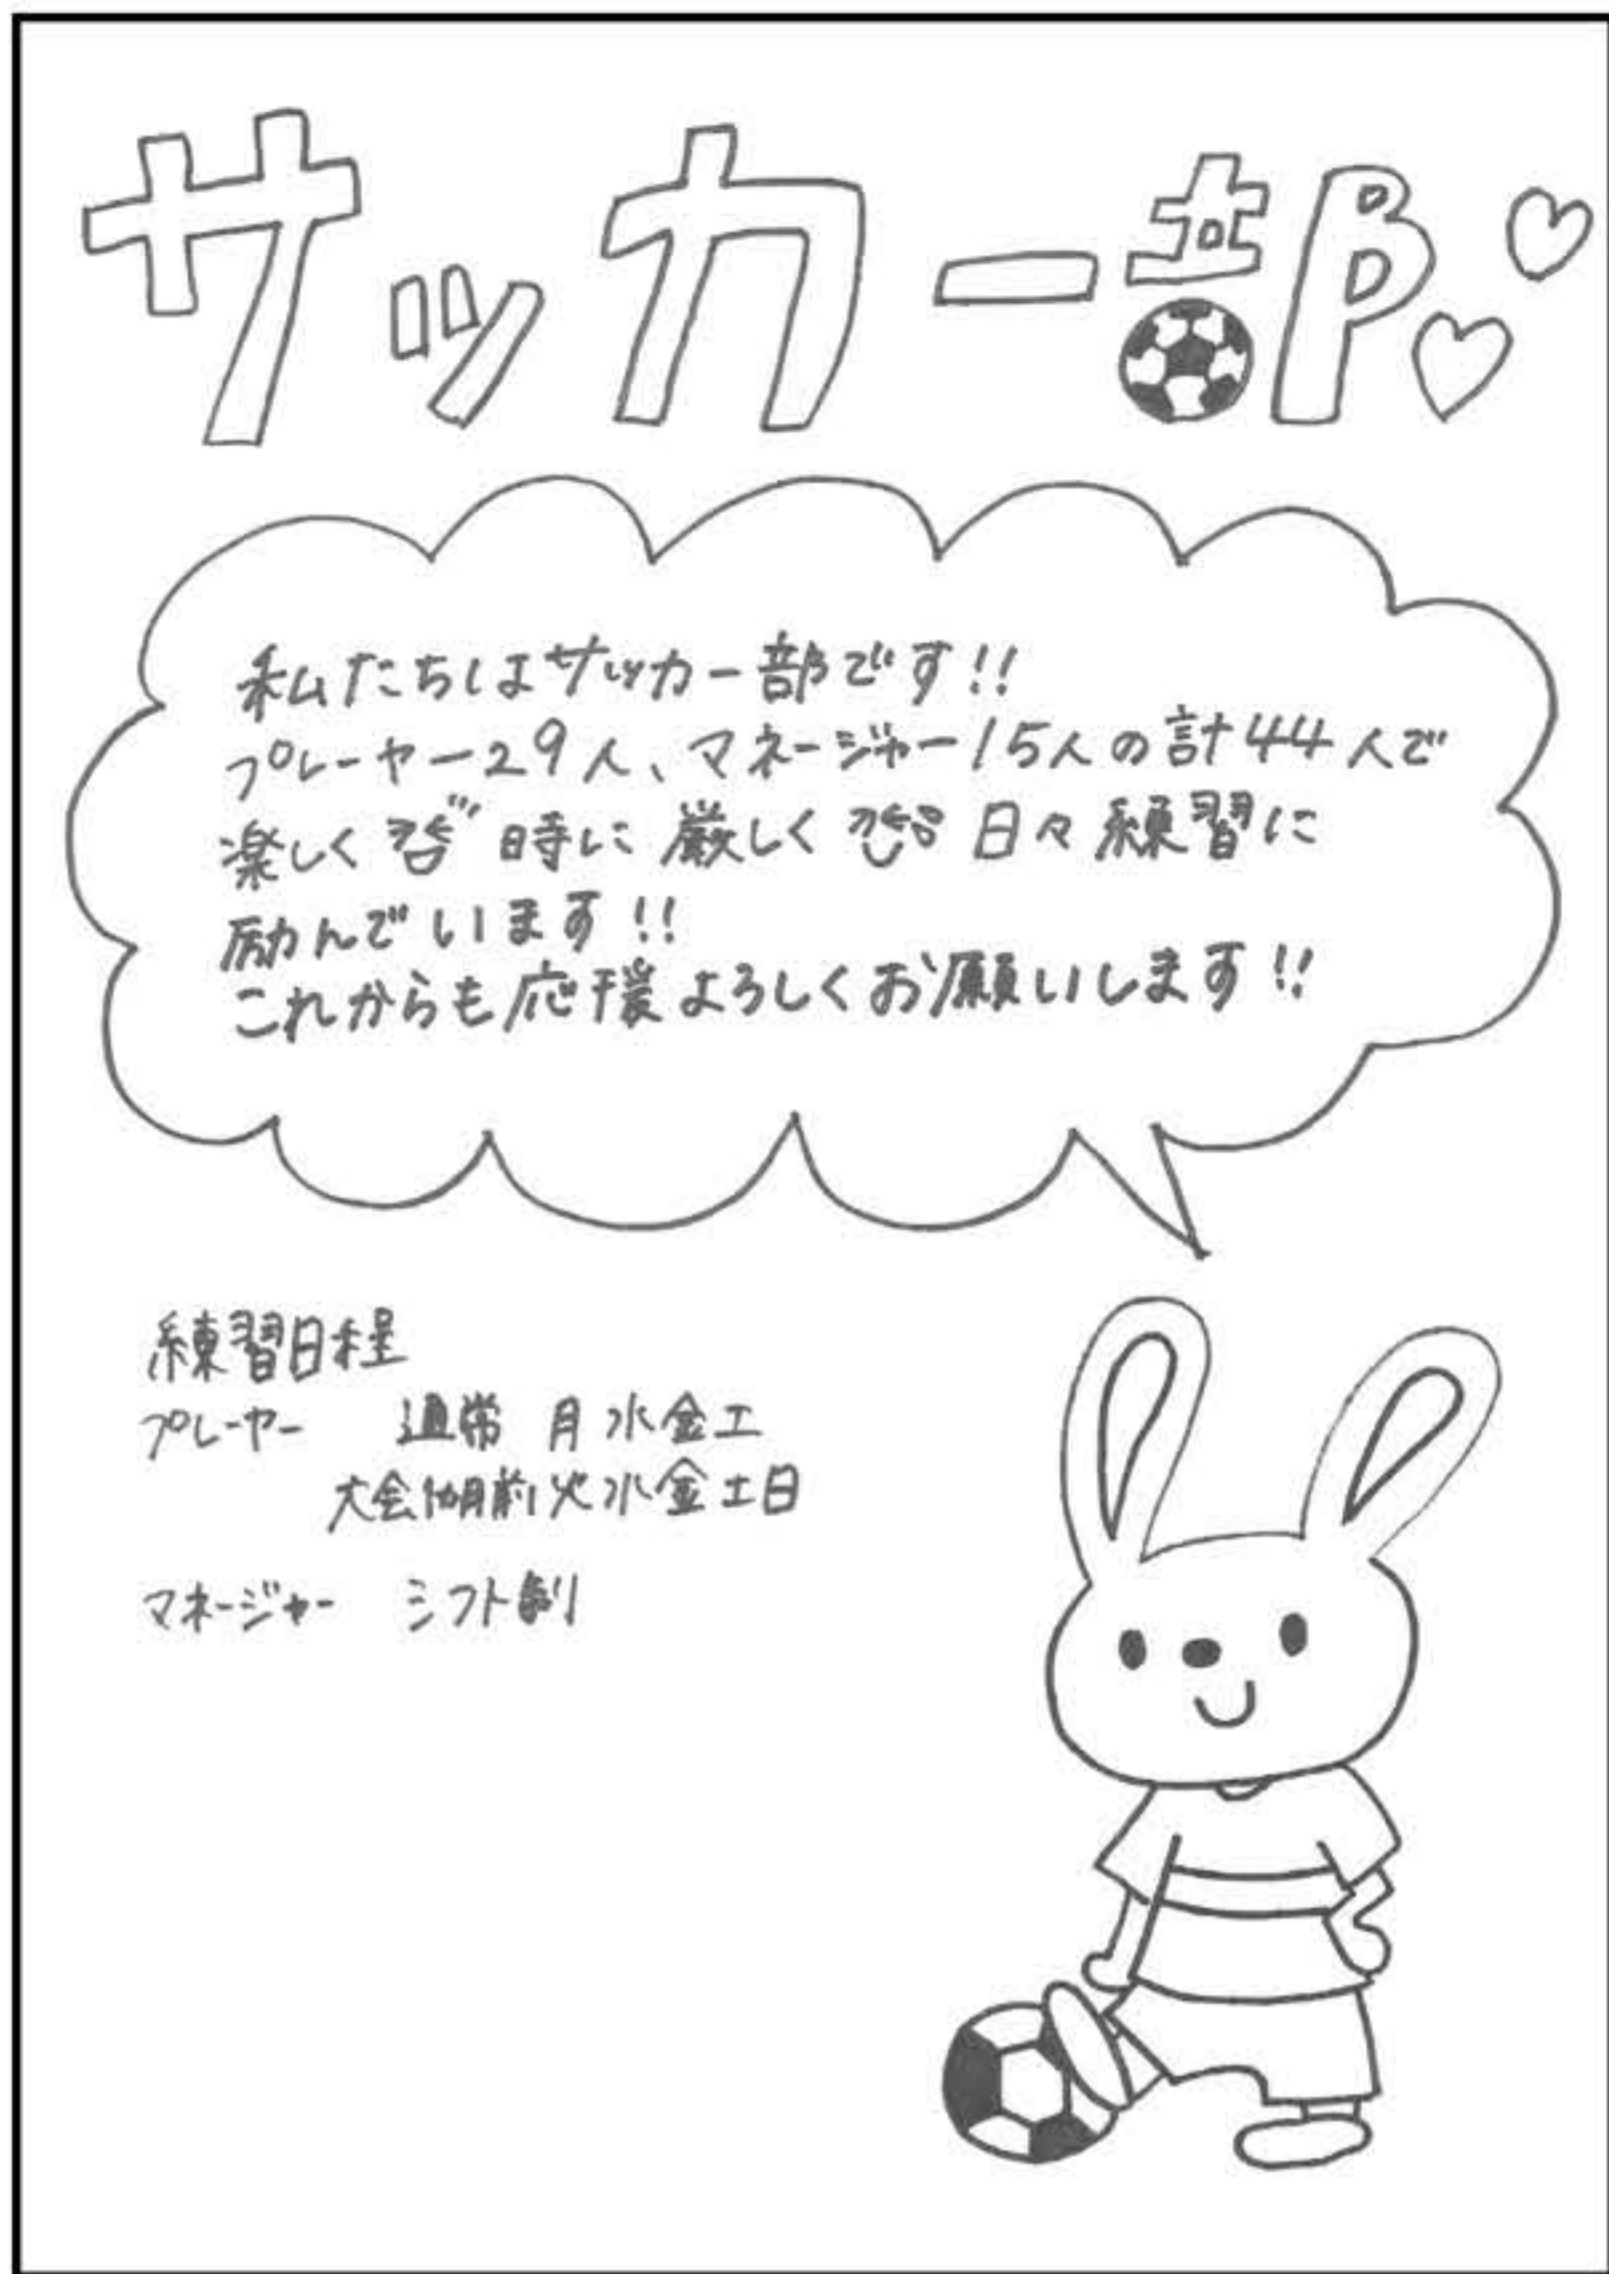 サッカー部
私たちはサッカー部です!!
プレーヤー29人、マネージャー15人の計44人で
楽しく 時に 厳しく 日々練習に
励んでいます!!
これからも応援よろしくお願いします!!
練習日程
プレーヤー 通常 月水金土
大会期間前 火水金土日
マネージャー シフト制